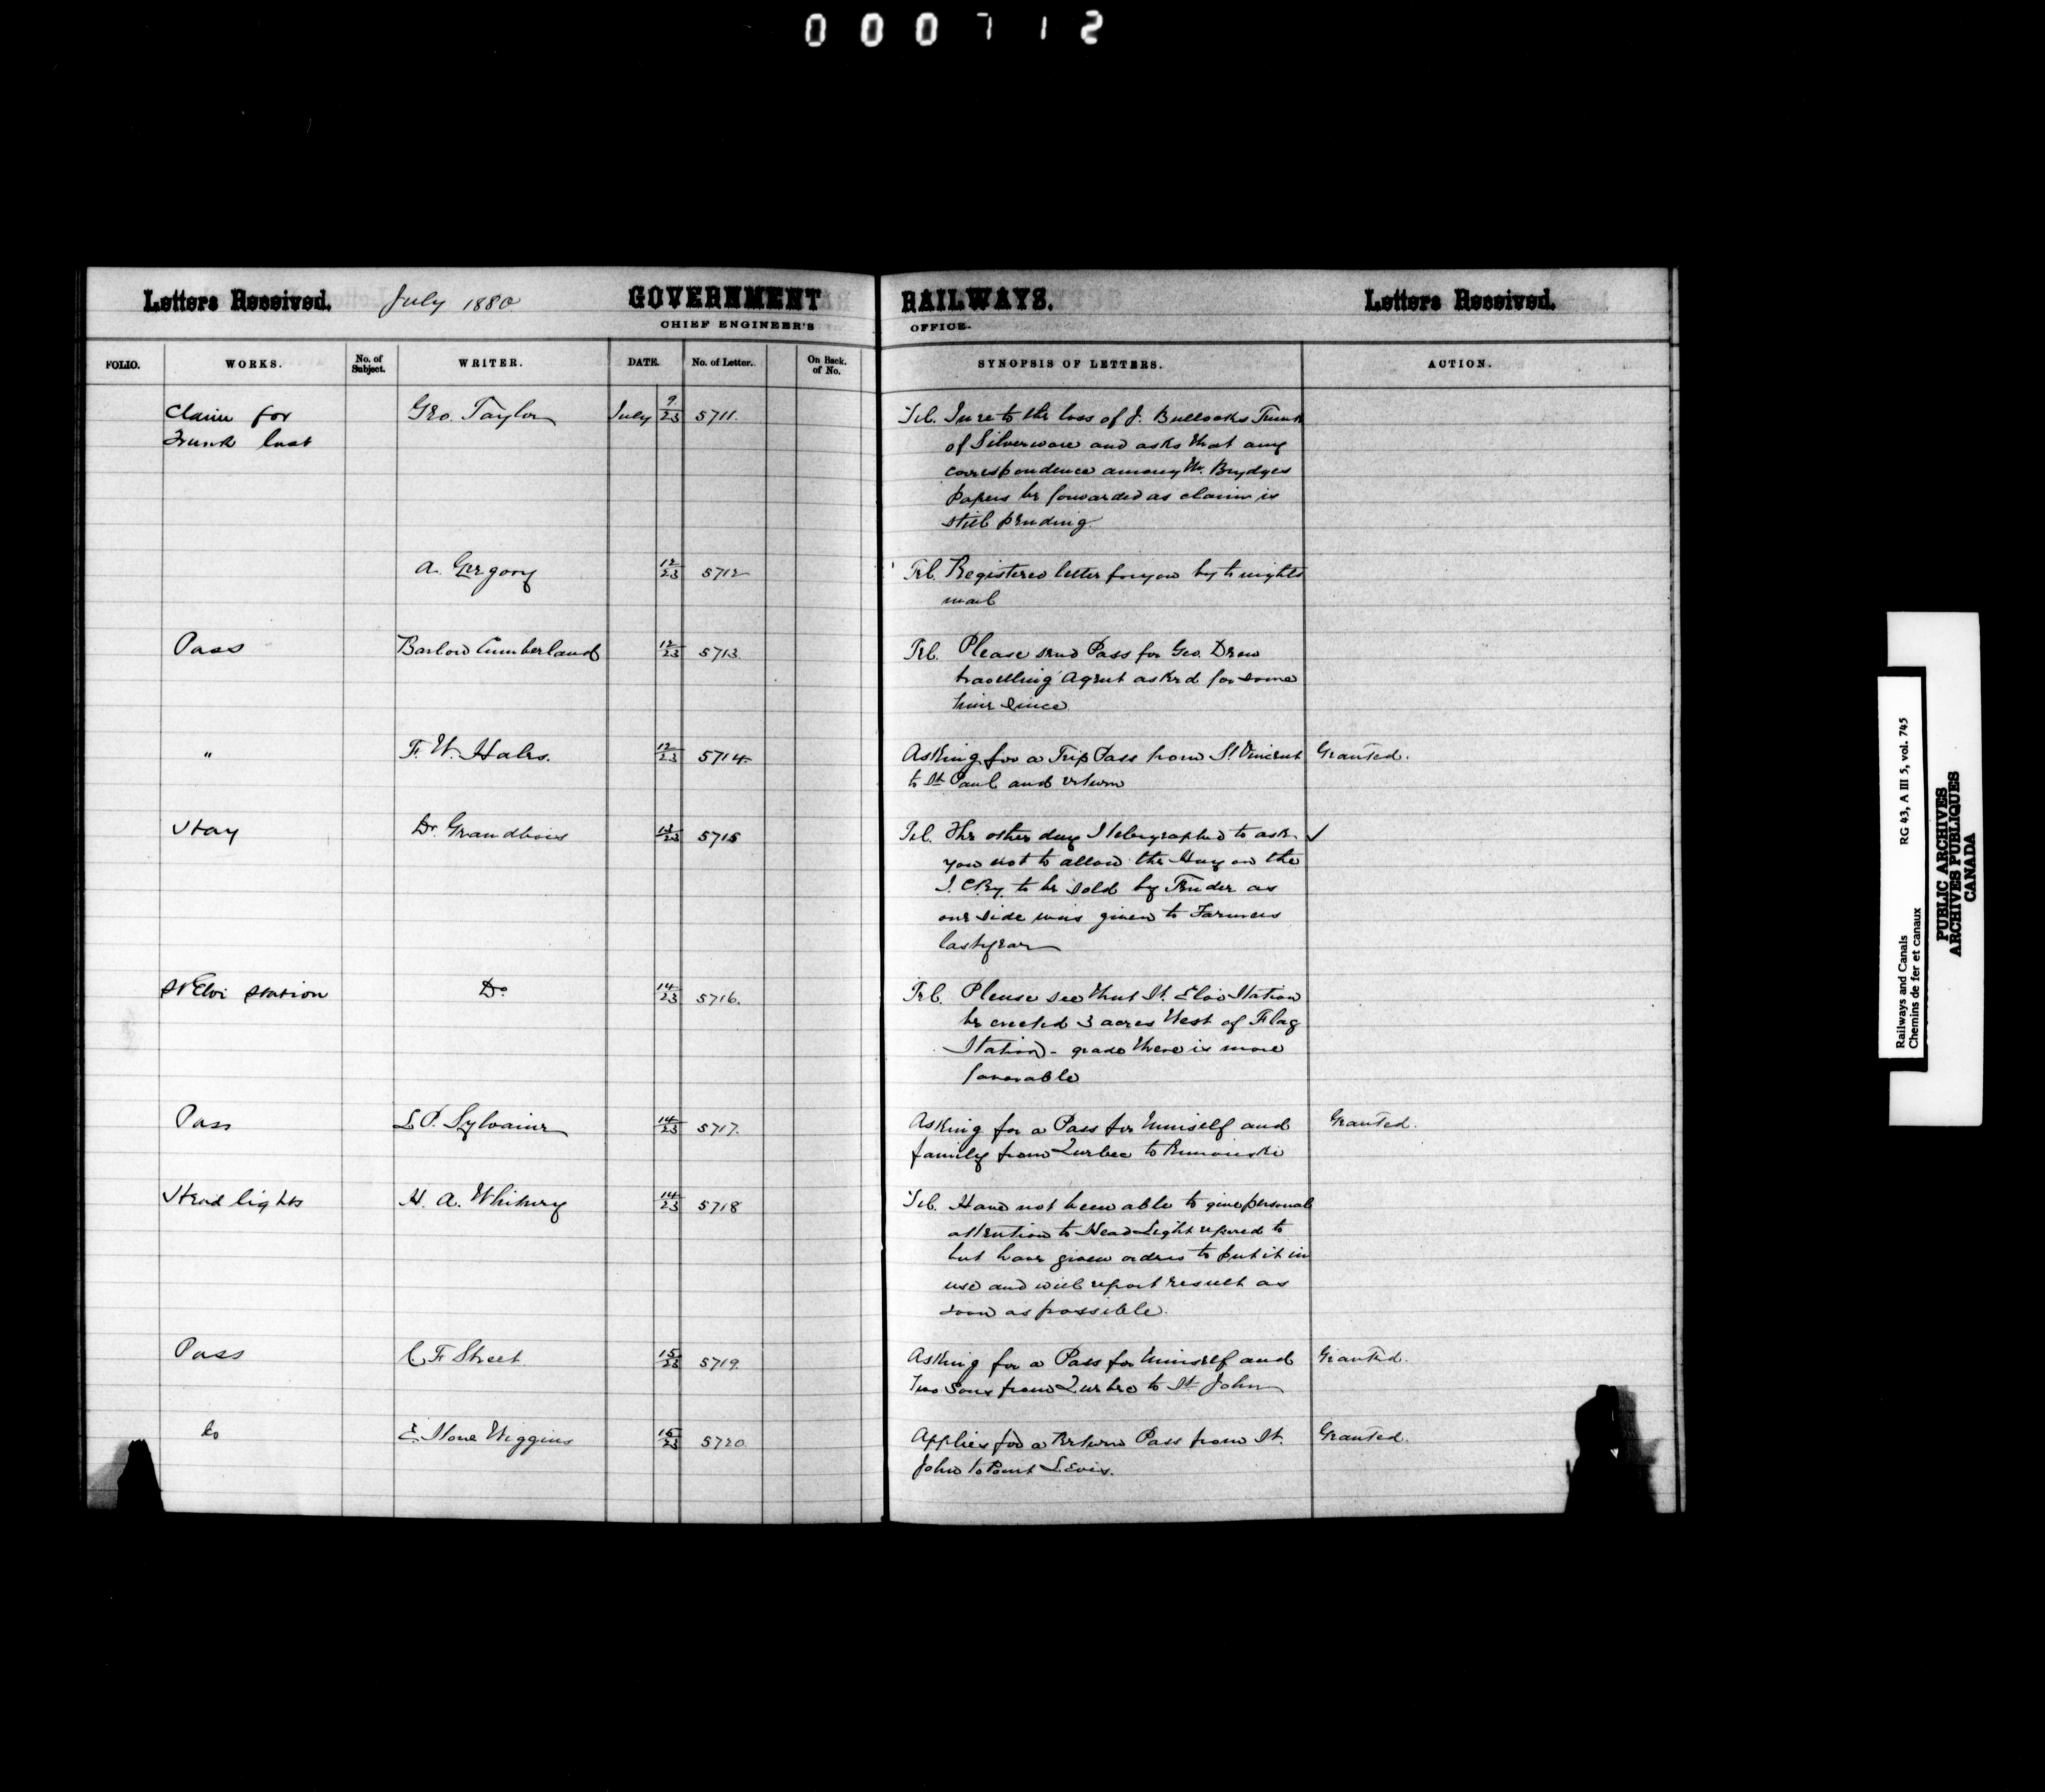 000712
Letters Received. July 1880 GOVERNMENT RAILWAYS. Letters Received.
CHIEF ENGINEER'S OFFICE.
FOLIO. WORKS. No. of Subject. WRITER. DATE. No. of Letter. On Back. of No. SYNOPSIS OF LETTERS. ACTION.
Claim for Geo. Taylor July 9/23 5711. Tel. In re to the loss of J. Bullocks Trunk
Trunk lost of Silverware and asks that any
correspondence among Mr. Brydges
papers be forwarded as claim is
still pending
A. Gregory 12/23 5712 Tel. Registered letter for you by to nights
mail
Pass Barlow Cumberland 12/23 5713. Tel. Please send Pass for Geo. Drew
travelling Agent asked for some
time since
" F. W. Hales. 12/23 5714 Asking for a Trip Pass from St Vincent Granted.
to St Paul and return
Hay Dr. Grandbois 13/23 5715 Tel. The other day I telegraphed to ask ✓
you not to allow the Hay on the
I. C Ry. to be sold by Tender as
one side was given to Farmers
last year
St Eloi Station Do 14/23 5716. Tel. Please see that St. Eloi Station
be erected 3 acres West of Flag
Station - grade there is more
favorable
Pass L. P. Sylvain 14/23 5717. Asking for a Pass for himself and Granted.
family from Quebec to Rimouski
Head lights H. A. Whitney 14/23 5718 Tel. Have not been able to give personal
attention to Head Light refered to
but have given orders to put it in
use and will report result as
soon as possible.
Pass C. F Street 15/23 5719. Asking for a Pass for himself and Granted.
Two Sons from Quebec to St John
do E. Stone Wiggins 15/23 5720 Applies for a Return Pass from St. Granted.
John to Point Levis.
Railways and Canals RG 43, A III 5, vol. 745
Chemins de fer et canaux
PUBLIC ARCHIVES
ARCHIVES PUBLIQUES
CANADA